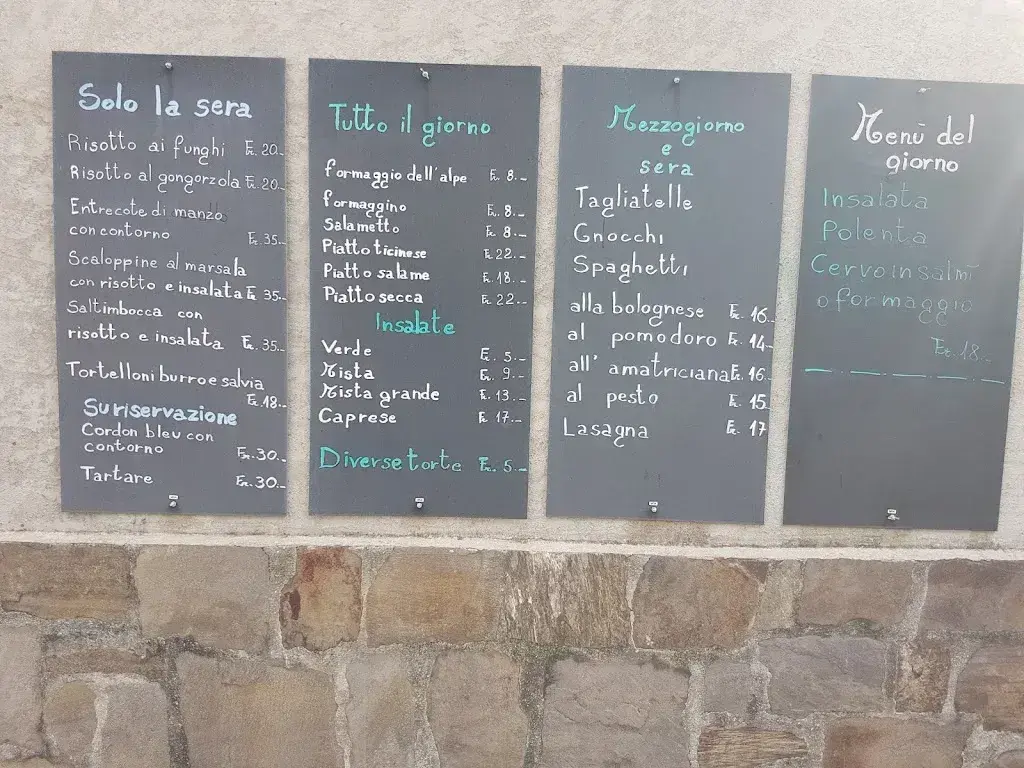 Solo la sera
Risotto ai funghi Fr. 20.-
Risotto al gongorzola Fr. 20.-
Entrecote di manzo
con contorno Fr. 35.-
Scaloppine al marsala
con risotto e insalata Fr. 35.-
Saltimbocca con
risotto e insalata Fr. 35.-
Tortelloni burro e salvia
Fr. 18.-
Su riservazione
Cordon bleu con
contorno Fr. 30.-
Tartare Fr. 30.-
Tutto il giorno
formaggio dell'alpe Fr. 8.-
formaggino Fr. 8.-
Salametto Fr. 8.-
Piatto ticinese Fr. 22.-
Piatto salame Fr. 18.-
Piatto secca Fr. 22.-
Insalate
Verde Fr. 5.-
Mista Fr. 9.-
Mista grande Fr. 13.-
Caprese Fr. 17.-
Diverse torte Fr. 5.-
Mezzogiorno
e
sera
Tagliatelle
Gnocchi
Spaghetti
alla bolognese Fr. 16.
al pomodoro Fr. 14.-
all'amatriciana Fr. 16.
al pesto Fr. 15
Lasagna Fr. 17
Menù del
giorno
Insalata
Polenta
Cervo in salmì
o formaggio
Fr. 18.-